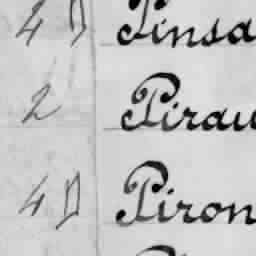 4 D Pinsa
2 Pirau
4 D Piron